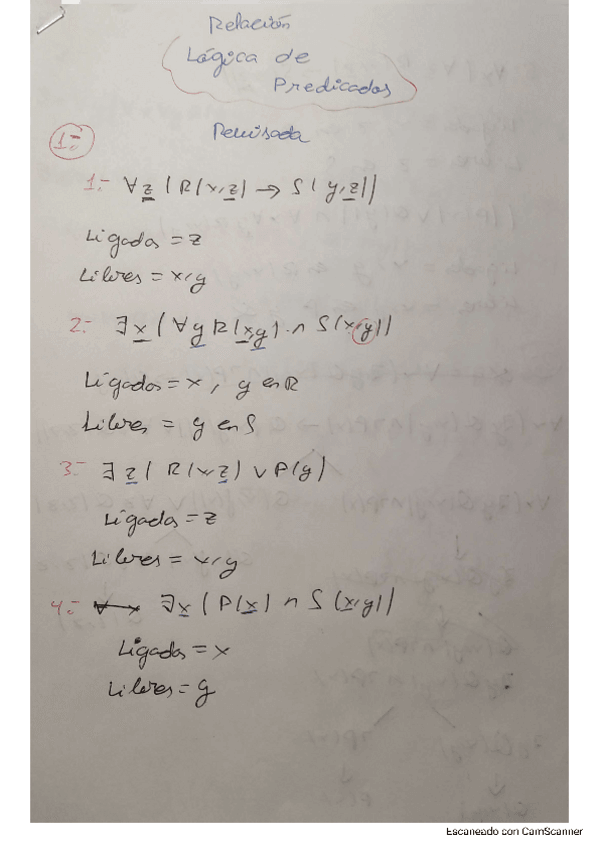 Relación
Lógica de
Predicados
1:-
Revisada
1:- ∀z (R(x,z) → S(y,z))
Ligadas = z
Libres = x,y
2:- ∃x (∀y R(x,y) ∧ S(x,y))
Ligadas = x, y en R
Libres = y en S
3:- ∃z( R(x,z) ∨ P(y)
Ligadas = z
Libres = x,y
4:- ∃x (P(x) ∧ S(x,y))
Ligadas = x
Libres = y
Escaneado con CamScanner